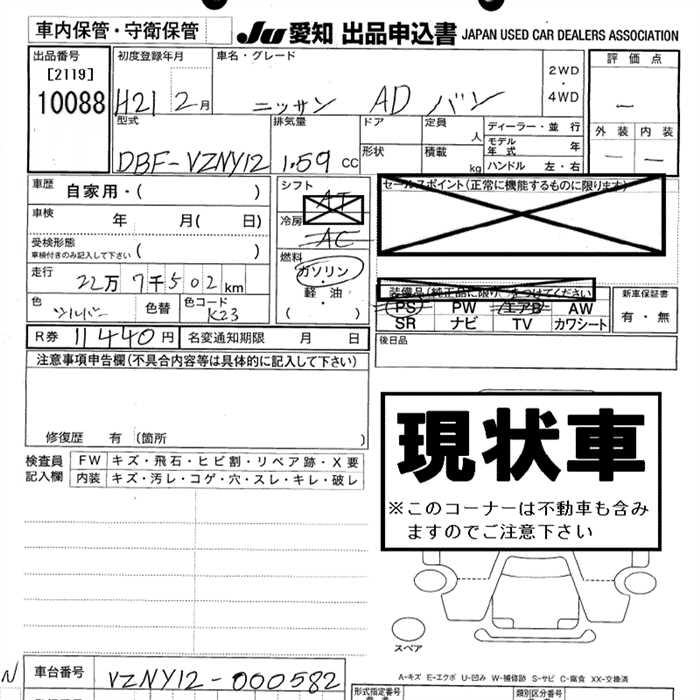 車内保管・守衛保管
JU 愛知 出品申込書 JAPAN USED CAR DEALERS ASSOCIATION
出品番号 初度登録年月 車名・グレード 評価点
[2119]
10088 H21 2月 ニッサン AD バン 2WD・4WD —
型式 排気量 ドア 定員 人 ディーラー・並行 外装 内装
DBF-VZNY12 1.59cc 形状 積載 kg モデル年式 年 — —
ハンドル 左・右
車歴 自家用・( ) シフト AT セールスポイント(正常に機能するものに限ります)
車検 年 月( 日) 冷房 AC
受検形態 車検付きのみ記入して下さい ( ) 燃料 ガソリン・軽油 ( )
走行 22万7千502km
装備品(純正品に限り をつけてください 新車保証書
色 シルバー 色替 色コード K23 PS PW エアB AW 有・無
SR ナビ TV カワシート
R券 11440円 名変通知期限 月 日 後日品
注意事項申告欄(不具合内容等は具体的に記入して下さい)
修復歴 有 (箇所 )
現状車
※このコーナーは不動車も含みますのでご注意下さい
検査員記入欄 FW キズ・飛石・ヒビ割・リペア跡・X要
内装 キズ・汚レ・コゲ・穴・スレ・キレ・破レ
スペア
N 車台番号 VZNY12-000582
A-キズ E-エクボ U-凹み W-補修跡 S-サビ C-腐食 XX-交換済
形式指定番号 類別区分番号